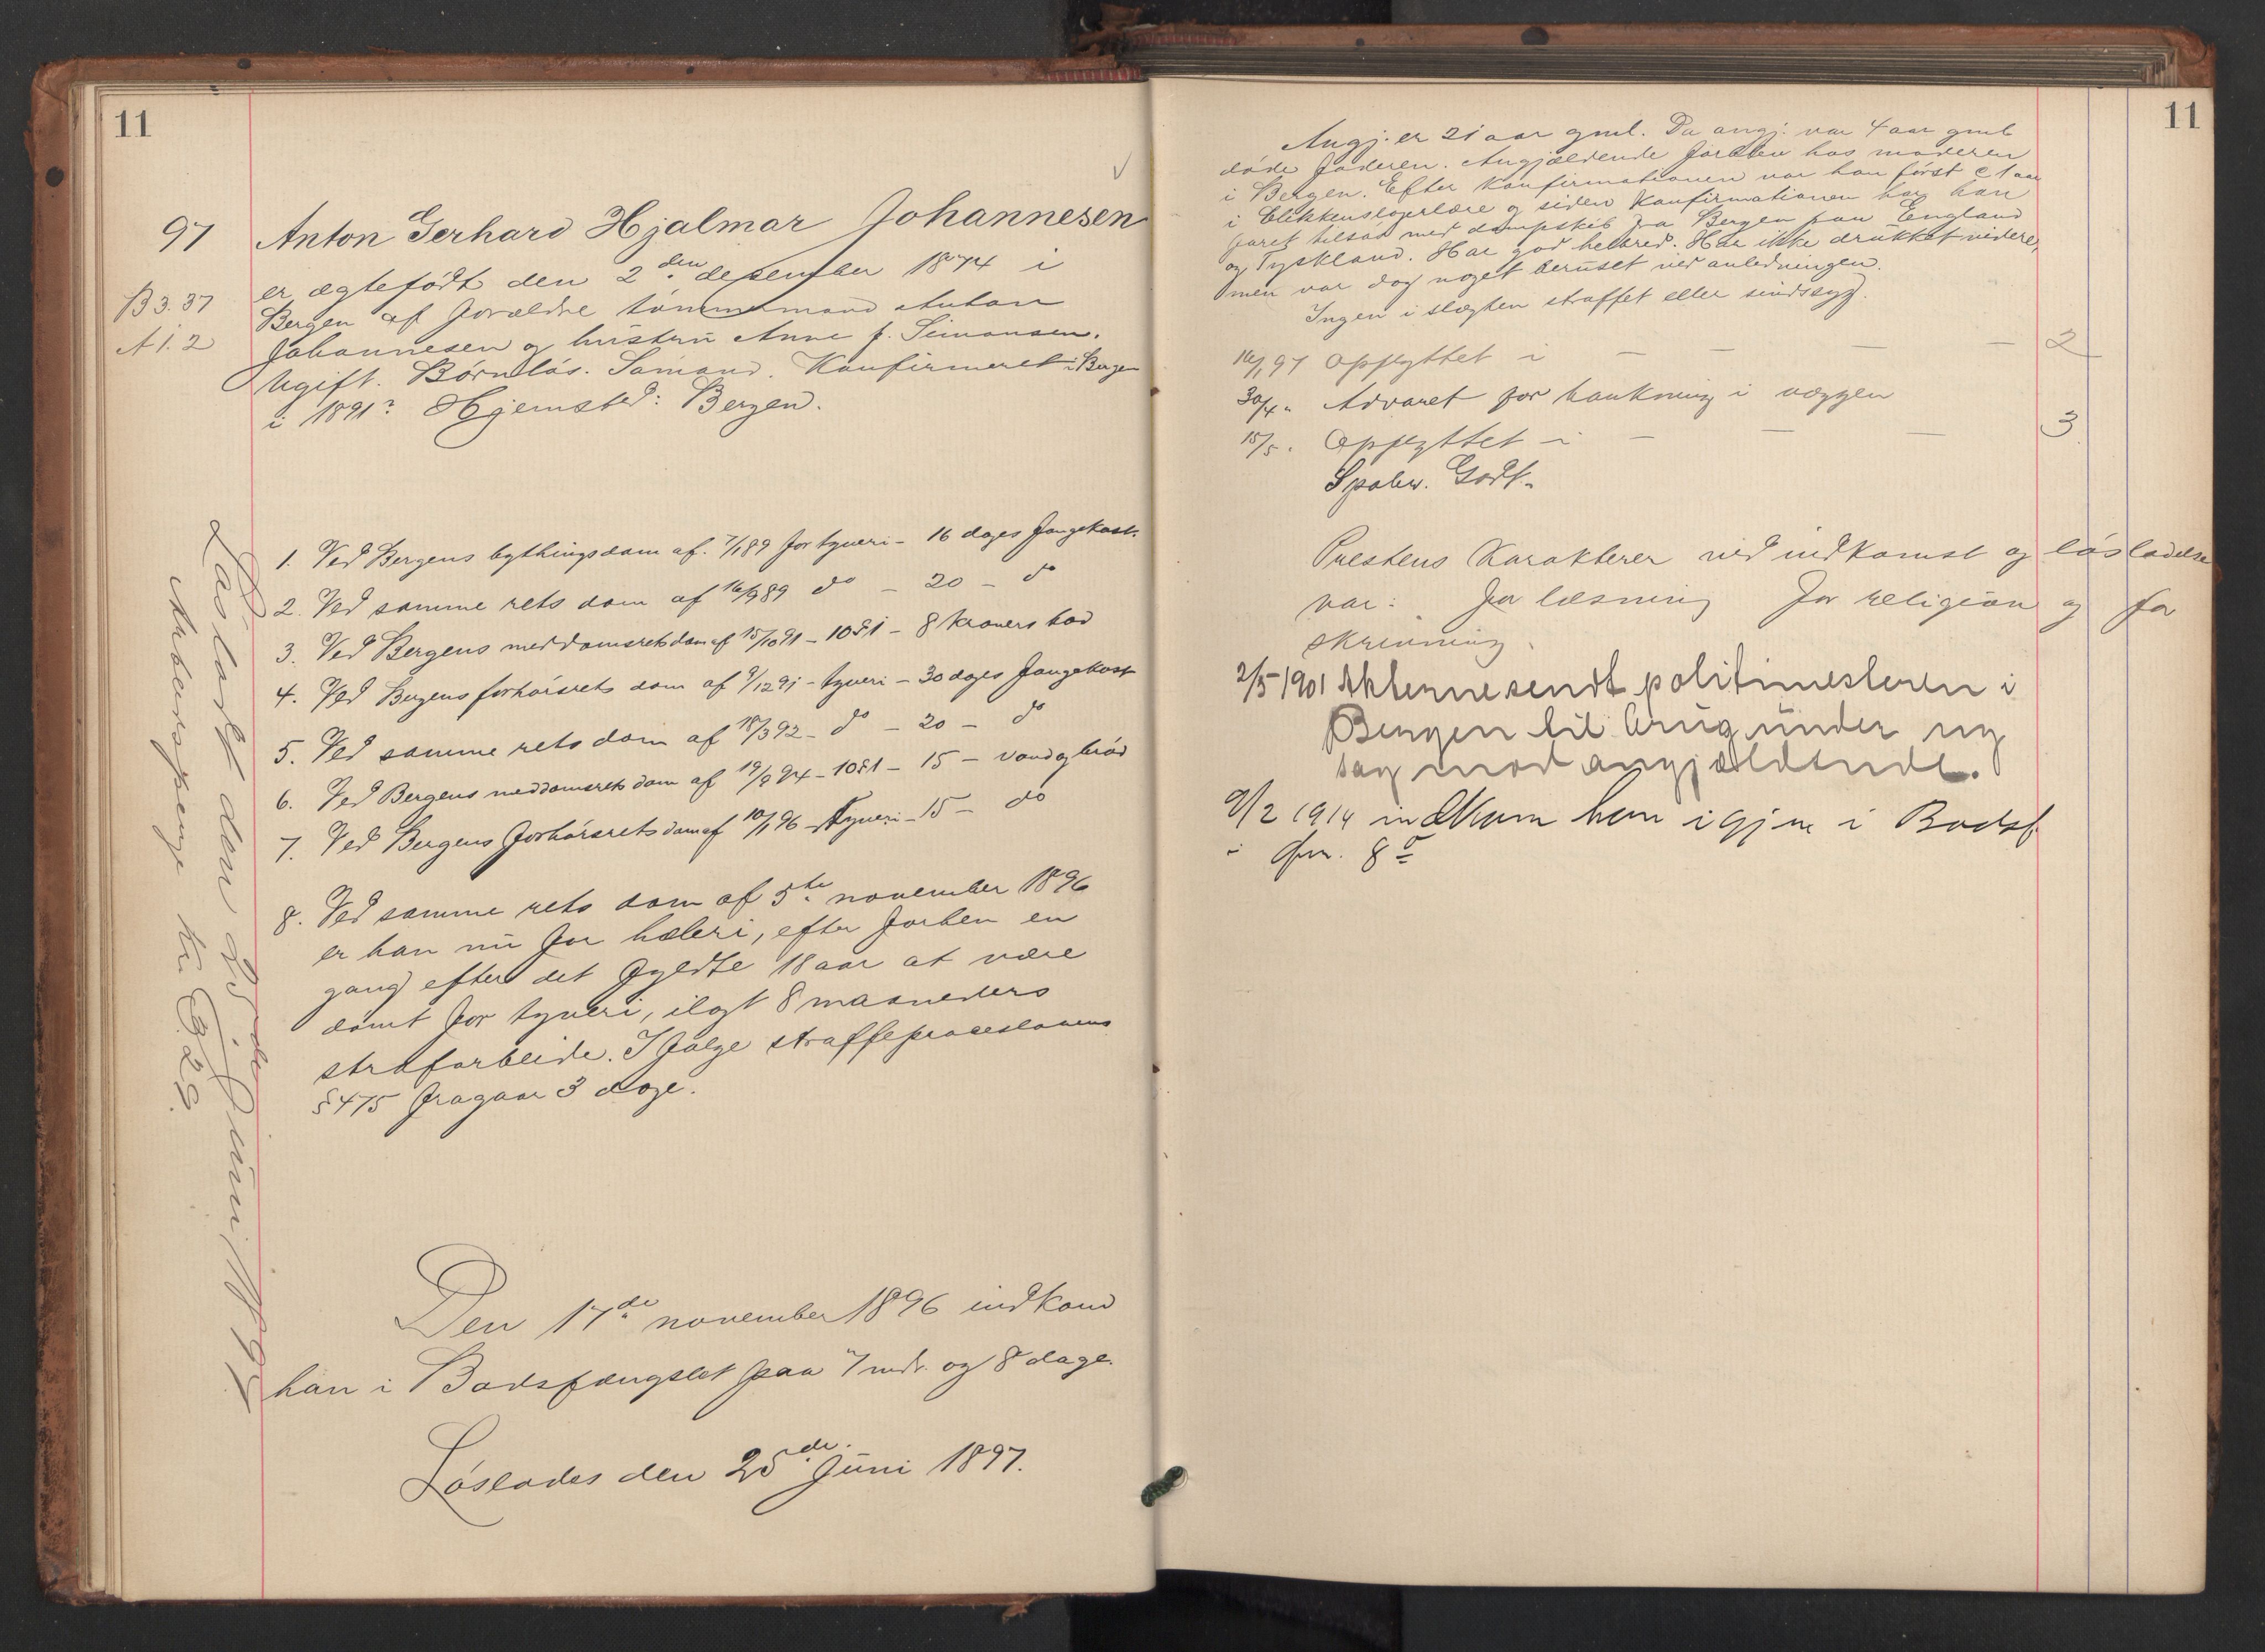 11
97 Anton Gerhard Hjalmar Johannesen
er ægtefødt den 2den desember 1874 i
B 3. 37 Bergen af forældre tømmermand Anton
A 1. 2 Johannesen og hustru Anne f. Simonsen.
Ugift. Barnløs. Sømand. Konfirmeret i Bergen
i 1891? Hjemsted: Bergen.
1. Ved Bergens bythingsdom af 7/1 89 for tyveri - 16 dages fangekost.
2. Ved samme rets dom af 16/9 89 do - 20 - do
3. Ved Bergens meddomsretsdom af 15/10 91 - 10 § 1 - 8 kroners bod
4. Ved Bergens forhørsrets dom af 9/12 91 - tyveri - 30 dages fangekost
5. Ved samme rets dom af 18/3 92 - do - 20 - do
6. Ved Bergens meddomsrets dom af 19/9 94 - 10 § 1 - 15 - vand og brød
7. Ved Bergens forhørsrets dom af 10/1 96 - Tyveri - 15 - do
8. Ved samme rets dom af 5te november 1896
er han nu for hæleri, efter forhen en
gang efter det fyldte 18 aar at være
dømt for tyveri, ilagt 8 maaneders
strafarbeide. I følge straffeproceslovens
§ 475 fragaar 3 dage.
Den 17de november 1896 indkom
han i Bodsfængslet paa 7 mdr. og 8 dage.
Løslades den 25de Juni 1897.
Løsladt den 25de Juni 1897
Arbeidspenge kr
11
Angj. er 21 aar gml. Da angj. var 4 aar gml
døde faderen. Angjældende forblev hos moderen
i Bergen. Efter Konfirmationen var han først c 1 aar
i Blikkenslagerlære og siden Konfirmationen har han
faret tilsøs med dampskib fra Bergen paa England
og Tyskland. Har god helbred. Har ikke drukket videre,
men var dog noget beruset ved anledningen.
Ingen i slægten straffet eller sindssyg.
16/1 97 Opflyttet i — — — — 2
30/4 " Advaret for bankning i væggen
15/5 " Opflyttet i — — — 3
Godt.
Prestens Karakterer ved indkomst og løsladelse
var: for læsning for religion og for
skrivning.
2/5 1901 Akterne sendt politimesteren i
Bergen til brug under ny
sag mod angjældende.
9/2 1914 indkom han igjen i Bodsf.